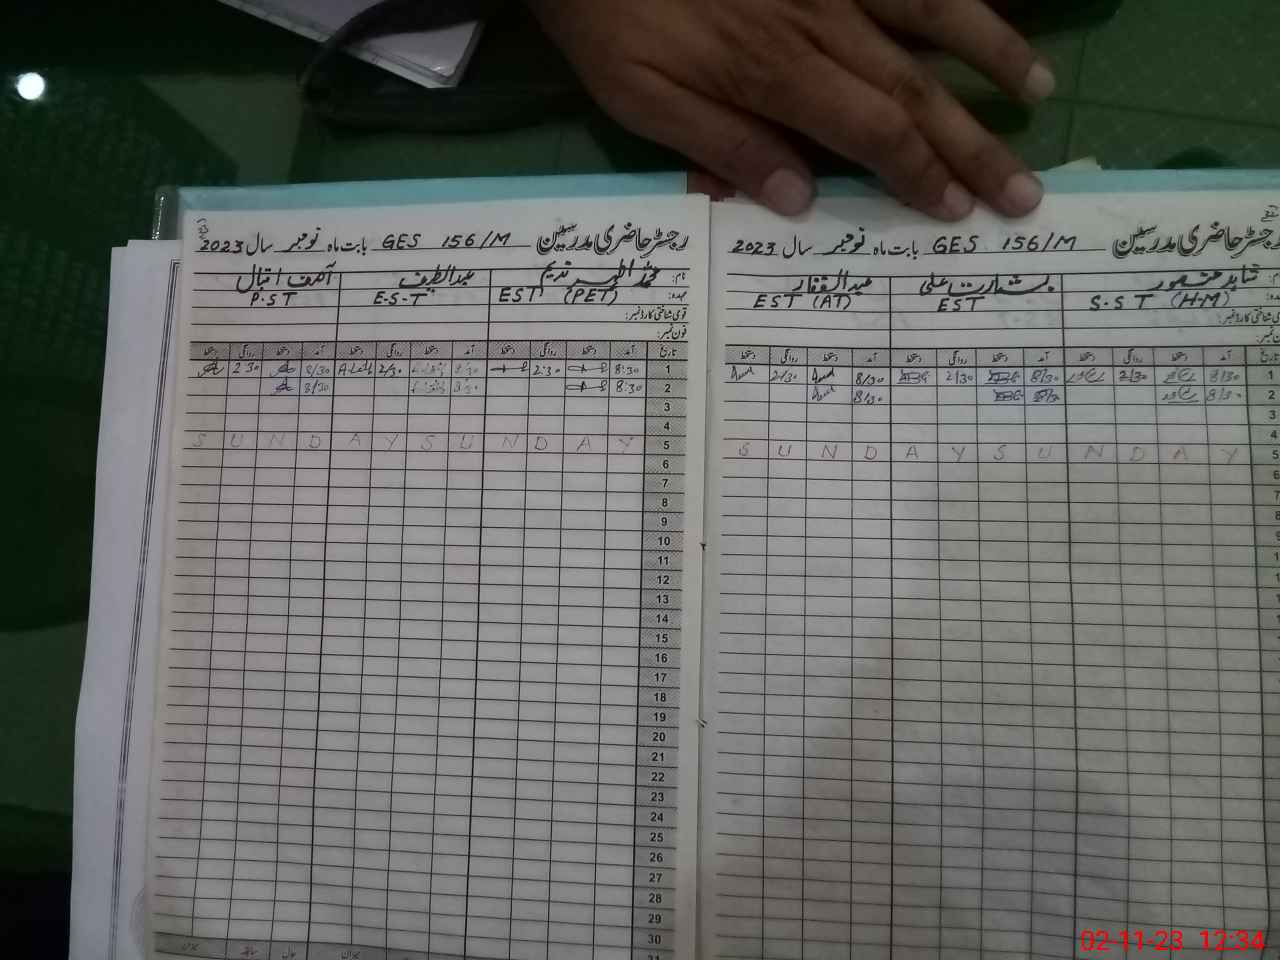 رجسٹر حاضری مدرسین GES 156/M بابت ماہ نومبر سال 2023
نام: شاہد منصور بشارت علی عبدالغفار
عہدہ: S.ST (H.M) EST EST (AT)
قومی شناختی کارڈ نمبر:
فون نمبر:
تاریخ آمد دستخط روانگی دستخط آمد دستخط روانگی دستخط آمد دستخط روانگی دستخط
1 8/30 2/30 8/30 2/30 8/30 2/30
2 8/30 8/30 8/30
3
4
5 S U N D A Y S U N D A Y
6
7
8
9
رجسٹر حاضری مدرسین GES 156/M بابت ماہ نومبر سال 2023
نام: محمد اظہر ندیم عبدالطیف آصف اقبال
عہدہ: EST (PET) E-S-T P.ST
قومی شناختی کارڈ نمبر:
فون نمبر:
تاریخ آمد دستخط روانگی دستخط آمد دستخط روانگی دستخط آمد دستخط روانگی دستخط
1 8:30 2:30 8/30 2/30 8/30 2:30
2 8:30 8/30 8/30
3
4
5 S U N D A Y S U N D A Y
6
7
8
9
10
11
12
13
14
15
16
17
18
19
20
21
22
23
24
25
26
27
28
29
30
02-11-23 12:34